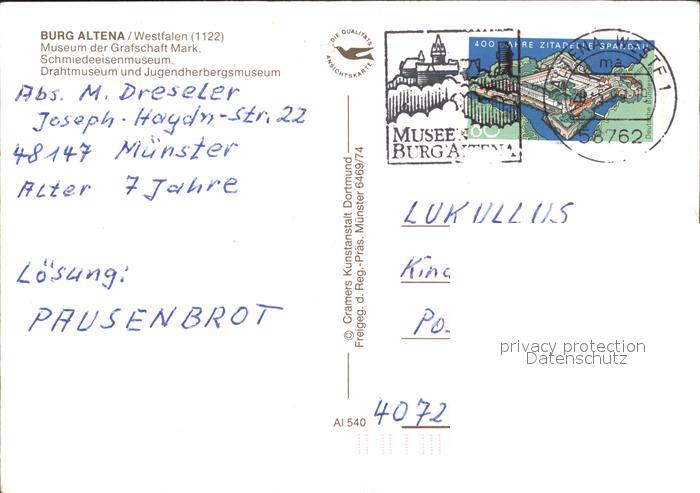 BURG ALTENA / Westfalen (1122)
Museum der Grafschaft Mark,
Schmiedeeisenmuseum,
Drahtmuseum und Jugendherbergsmuseum
Abs. M. Dreseler
Joseph-Haydn-Str. 22
48147 Münster
Alter 7 Jahre
Lösung:
PAUSENBROT
DIE QUALITÄTS
ANSICHTSKARTE
© Cramers Kunstanstalt Dortmund
Freigeg. d. Reg.-Präs. Münster 6469/74
AI 540
MUSEEN
BURG ALTENA
400 JAHRE ZITADELLE SPANDAU
60
Deutsche Bundespost
ma
58762
LUKULLUS
Kin
Po
4072
privacy protection
Datenschutz